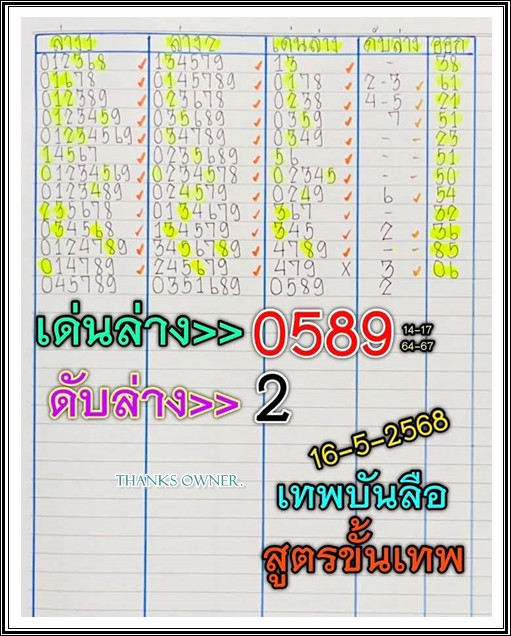 ล่าง1 ล่าง2 เด่นล่าง ดับล่าง ออก
012368 134579 13 - 38
01678 0145789 0178 2-3 61
012389 023678 0238 4-5 21
0123459 035689 0359 7 51
01234569 034789 0349 - - 23
14567 0235689 56 - - 51
01234569 0234578 02345 - - 50
0123489 024579 0249 6 54
235678 0134679 367 - - 32
034568 134579 345 2 36
0124789 3456789 4789 - - 85
014789 245679 479 X 3 06
045789 0351689 0589 2
เด่นล่าง>> 0589 14-17
64-67
ดับล่าง>> 2
16-5-2568
THANKS OWNER.
เทพบันลือ
สูตรขั้นเทพ